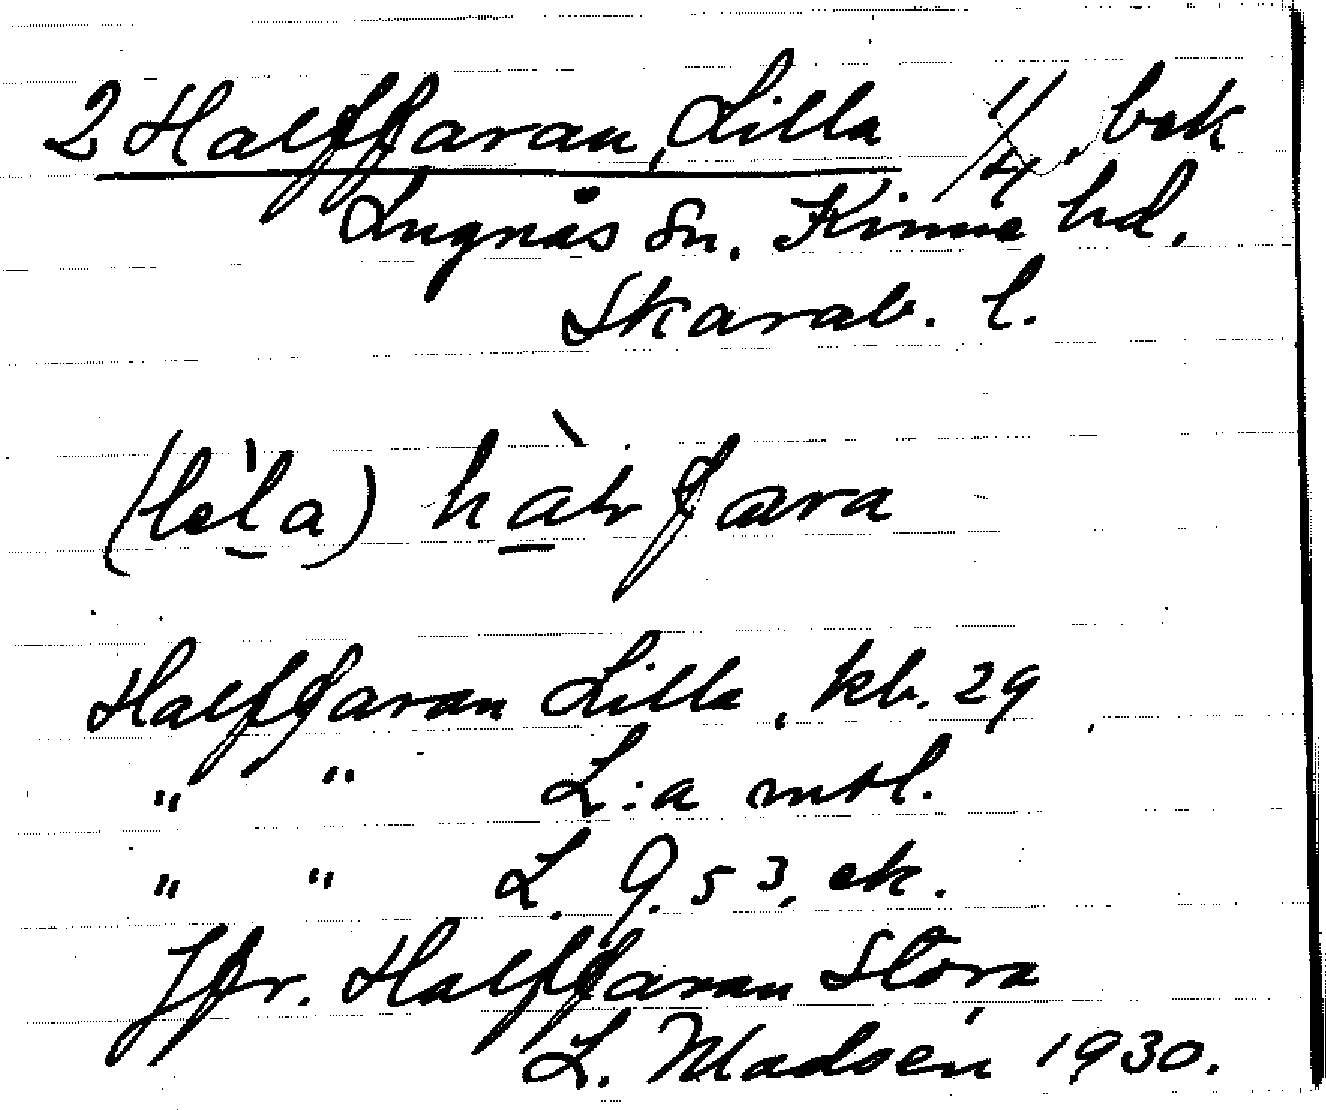 2 Halffaran, Lilla 1/4, bsk
Lugnås sn. Kinne hd.
Skarab. l.
(lѐla) hàlvfara
Halffaran Lilla, kb. 29
" " L:a mtl.
" " L. G. 53, ek.
Jfr. Halffaran Stora
L. Madsén 1930.